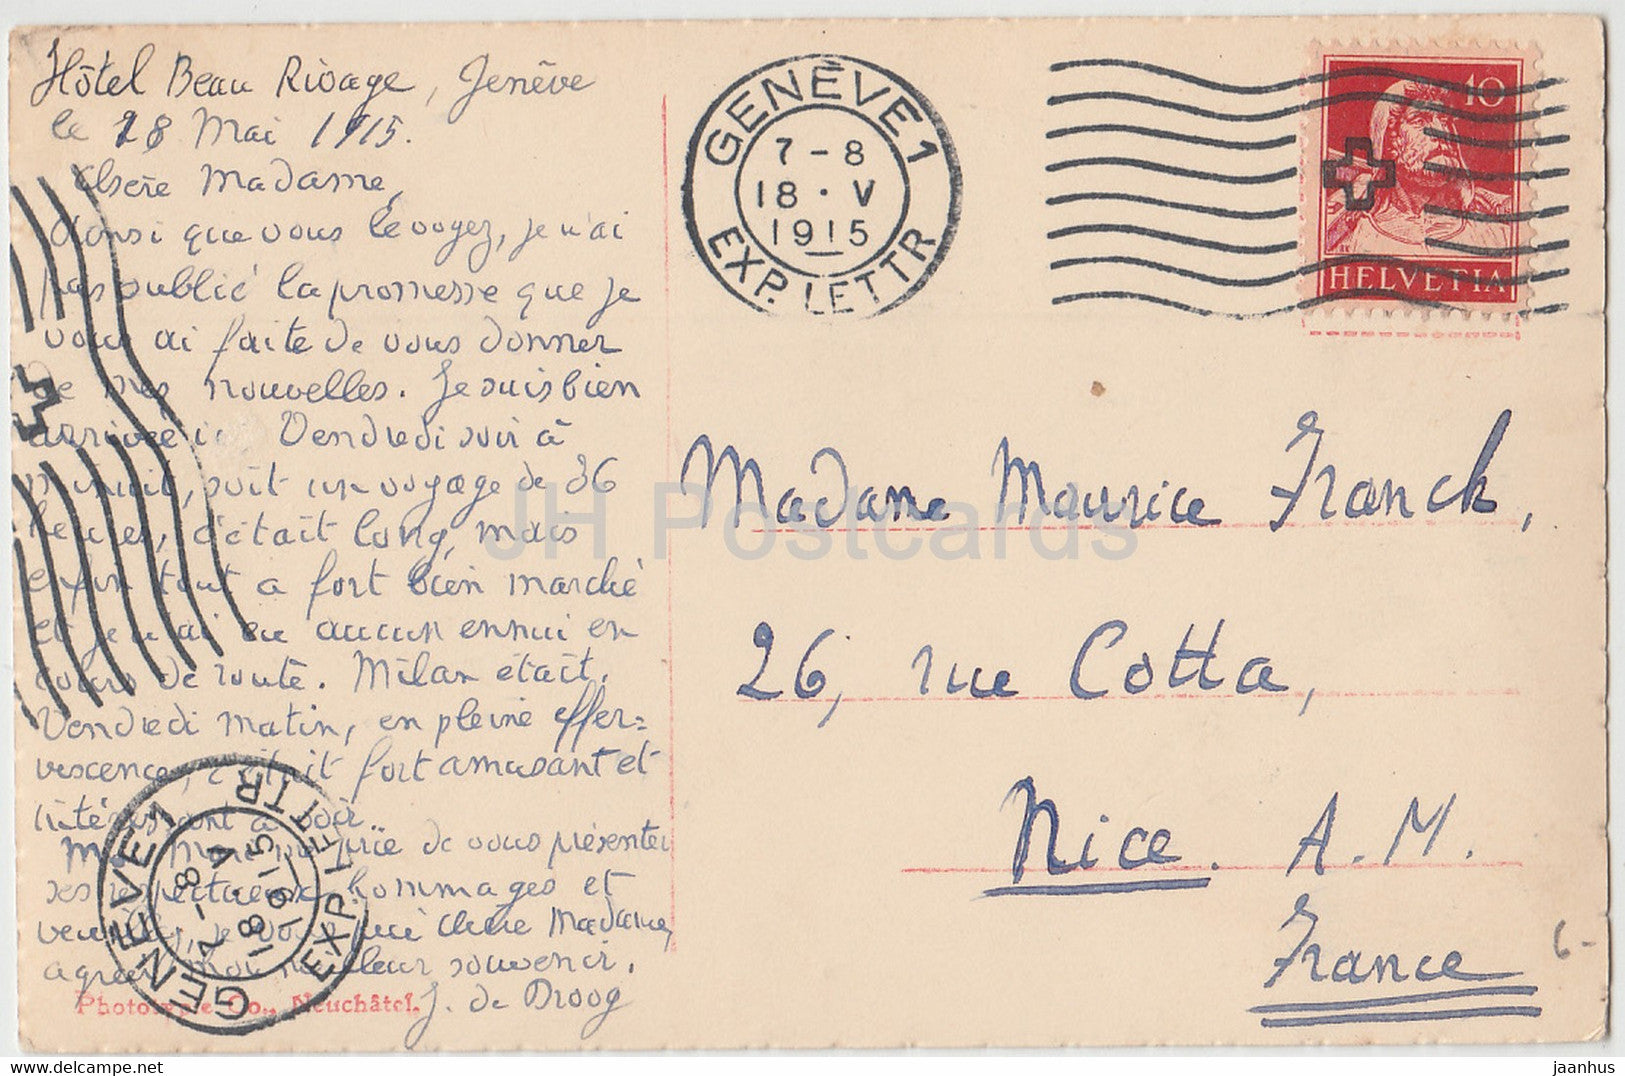 Hôtel Beau Rivage, Genêve
le 18 Mai 1915.
Chère Madame,
Ainsi que vous le voyez, je n'ai
pas oublié la promesse que je
vous ai faite de vous donner
de mes nouvelles. Je suis bien
arrivée ici Vendredi soir à
minuit, soit un voyage de 36
heures, c'était long, mais
enfin tout a fort bien marché
et je n'ai eu aucun ennui en
cours de route. Milan était,
Vendredi matin, en pleine effer=
vescence, c'était fort amusant et
intéressant à voir
Ma Mère me prie de vous présenter
ses respectueux hommages et
veuillez, je vous prie Chère Madame,
agréer mon meilleur souvenir.
J. de Droog
Phototypie Co., Neuchâtel.
GENÈVE 1
7-8
18·V
1915
EXP. LETTR
10
HELVETIA
Madame Maurice Franck,
26, rue Cotta,
Nice. A. M.
France
6-
GENÈVE 1
7-8
18·V
1915
EXP. LETTR
JH Postcards
delcampe.net
jaanhus